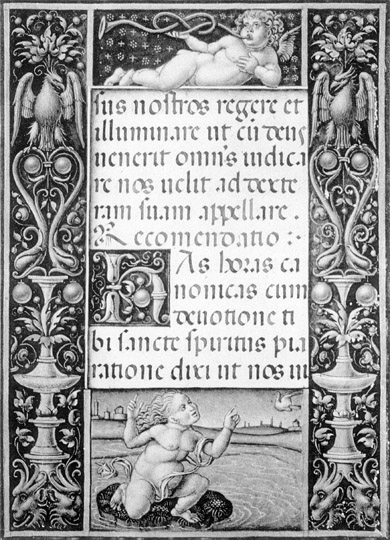 sus nostros regere et
illuminare ut cū deus
venerit omnis iudica
re nos velit ad dexte
ram suam appellare .
Recomendatio :·
HAs horas ca
nonicas cum
devotione ti
bi sancte spiritus pia
ratione dixi ut nos vi